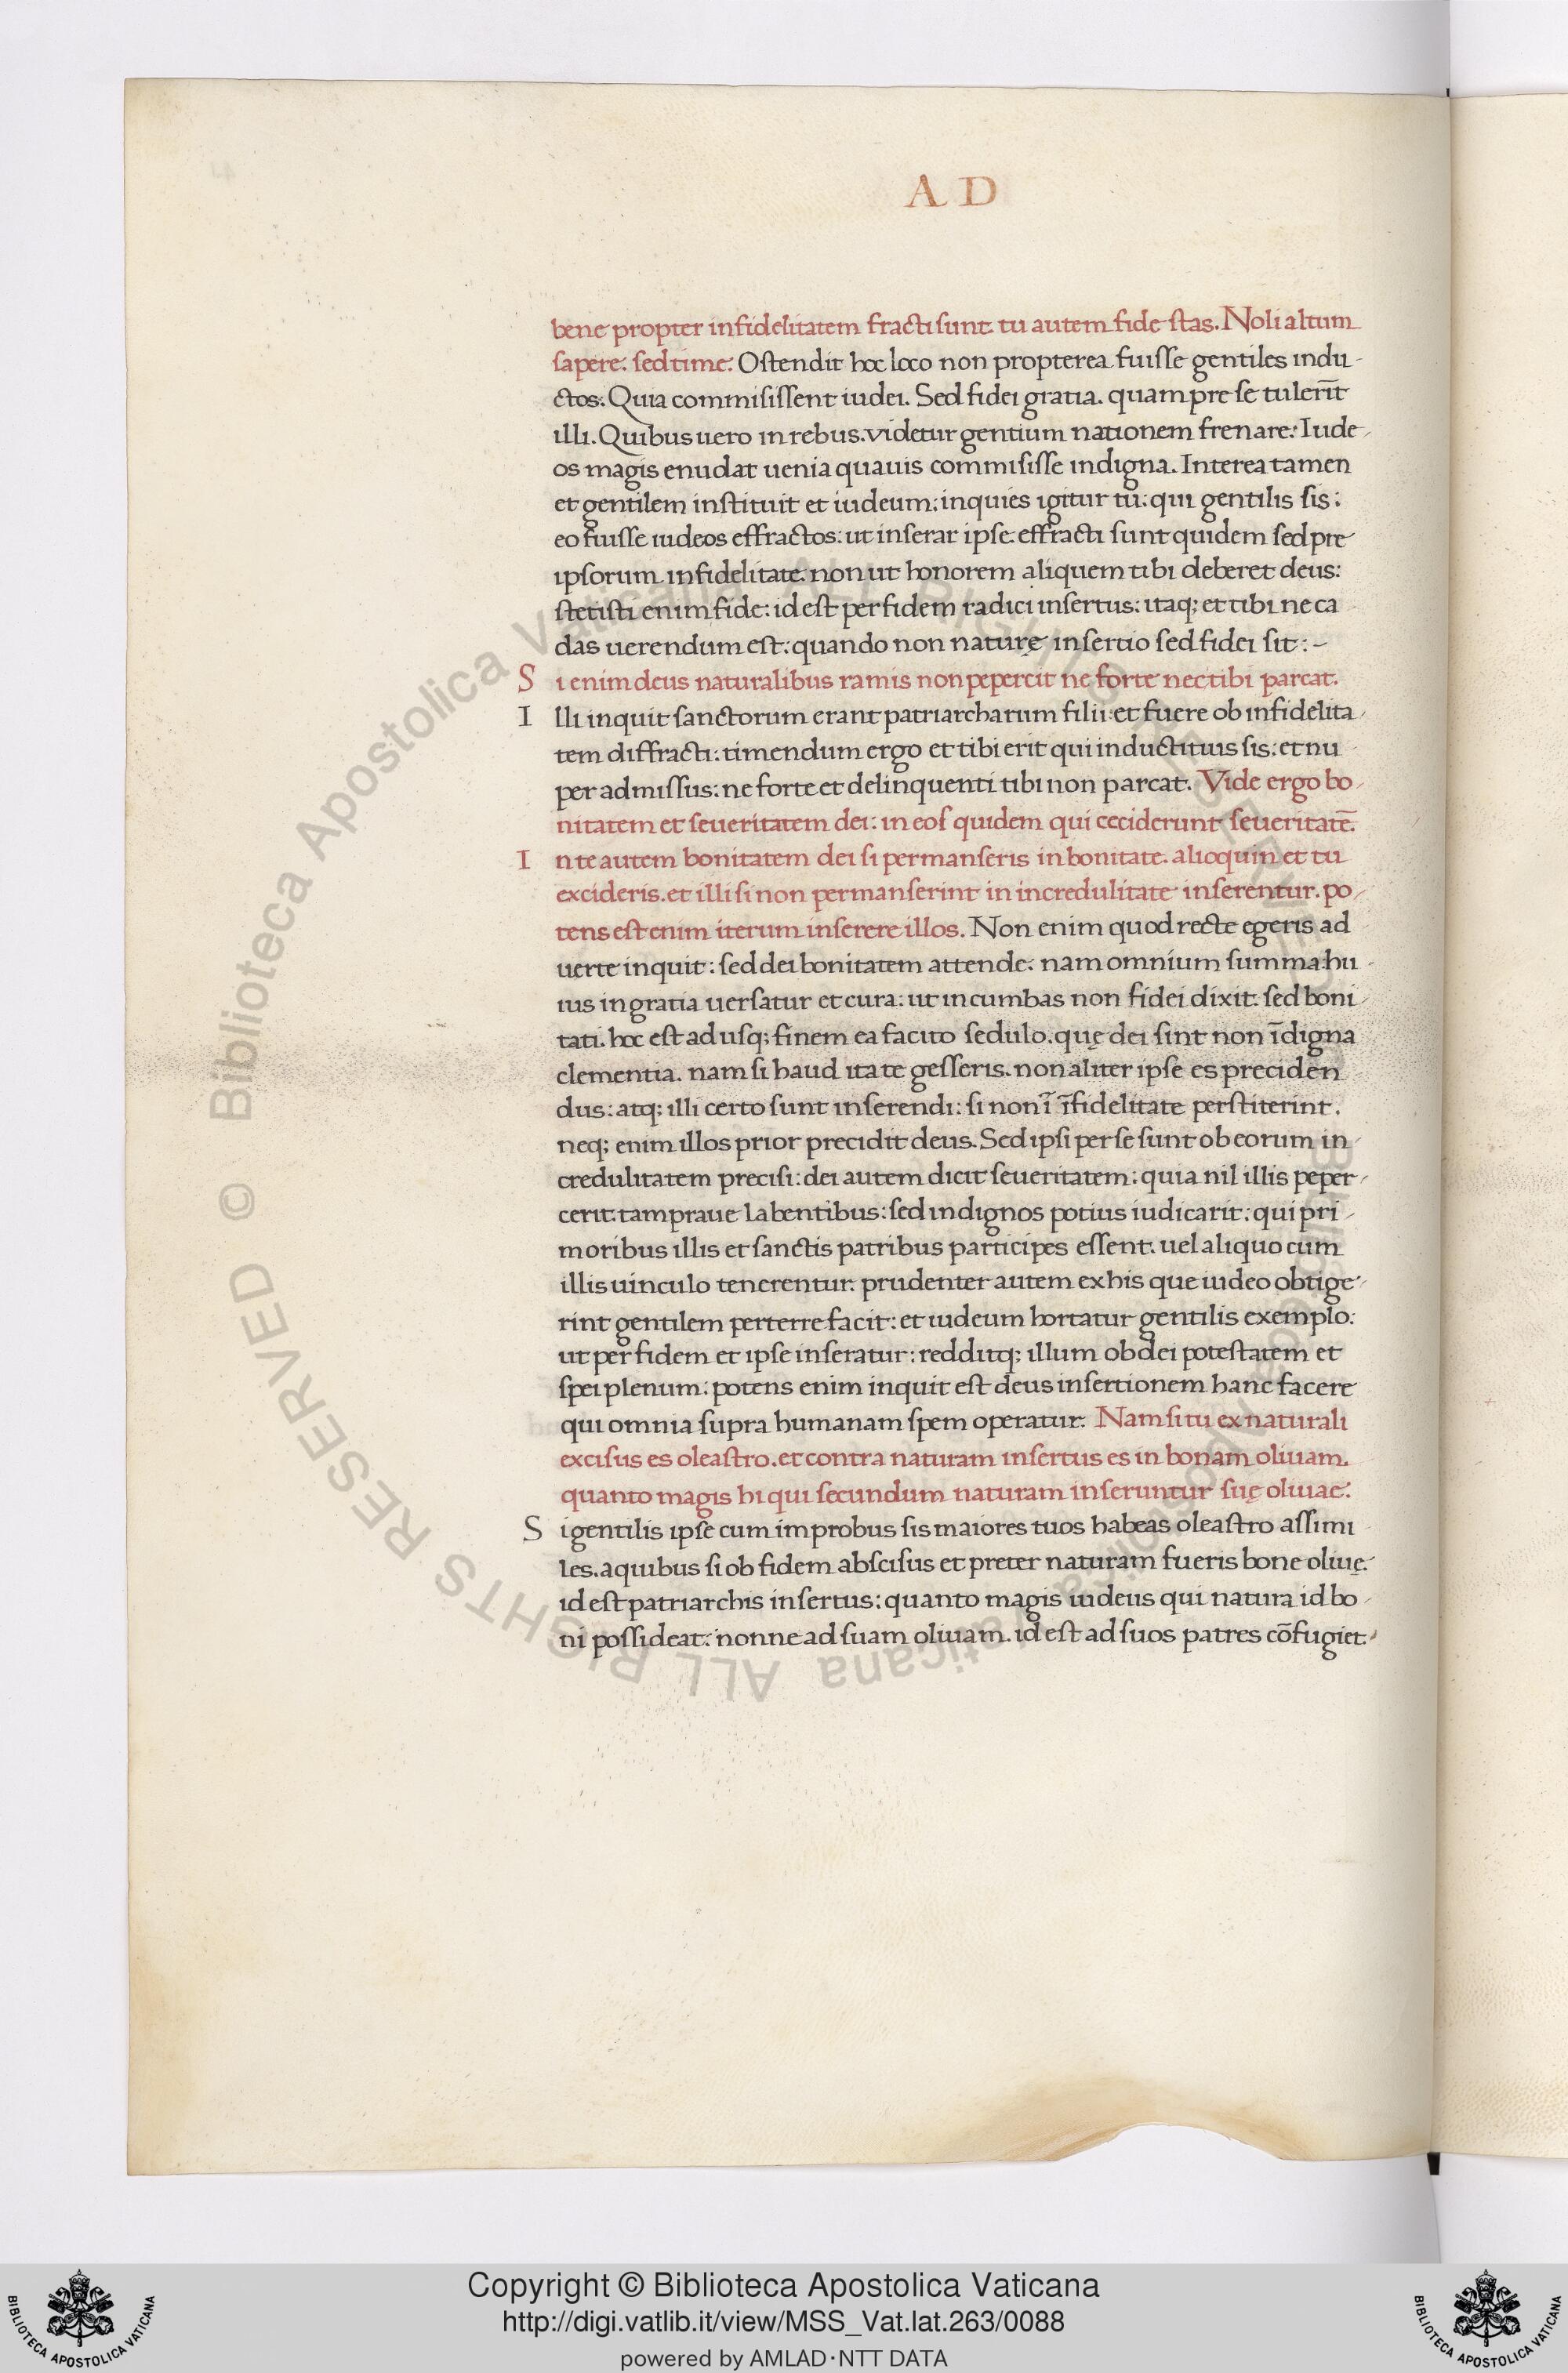 A D
bene propter infidelitatem fracti sunt. tu autem fide stas. Noli altum
sapere: sed time: Ostendit hoc loco non propterea fuisse gentiles indu-
ctos: Quia commisissent iudei. Sed fidei gratia. quam pre se tulerīt
illi. Quibus uero in rebus. videtur gentium nationem frenare: Iude-
os magis enudat uenia quauis commisisse indigna. Interea tamen
et gentilem instituit et iudeum: inquies igitur tu: qui gentilis sis:
eo fuisse iudeos effractos: ut inserar ipse: effracti sunt quidem sed pre
ipsorum infidelitate. non ut honorem aliquem tibi deberet deus:
stetisti enim fide: id est per fidem radici insertus: itaq; et tibi ne ca-
das uerendum est: quando non naturę insertio sed fidei sit: -
Si enim deus naturalibus ramis non pepercit ne forte nec tibi parcat.
Illi inquit sanctorum erant patriarcharum filii: et fuere ob infidelita-
tem diffracti: timendum ergo et tibi erit qui inductituis sis: et nu-
per admissus: ne forte et delinquenti tibi non parcat. Vide ergo bo-
nitatem et seueritatem dei: in eos quidem qui ceciderunt seueritatē.
In te autem bonitatem dei si permanseris in bonitate. alioquin et tu
excideris. et illi si non permanserint in incredulitate inserentur. po-
tens est enim iterum inserere illos. Non enim quod recte egeris ad
uerte inquit: sed dei bonitatem attende: nam omnium summa hu-
ius in gratia uersatur et cura: ut incumbas non fidei dixit: sed boni-
tati. hoc est ad usq; finem ea facito sedulo. quę dei sint non īdigna
clementia. nam si haud ita te gesseris. non aliter ipse es preciden-
dus: atq; illi certo sunt inserendi: si non ī īfidelitate perstiterint.
neq; enim illos prior precidit deus. Sed ipsi per se sunt ob eorum in-
credulitatem precisi: dei autem dicit seueritatem: quia nil illis peper-
cerit: tam praue labentibus: sed indignos potius iudicarit: qui pri-
moribus illis et sanctis patribus participes essent. uel aliquo cum
illis uinculo tenerentur. prudenter autem ex his que iudeo obtige-
rint gentilem perterre facit: et iudeum hortatur gentilis exemplo:
ut per fidem et ipse inseratur: redditq; illum ob dei potestatem et
spei plenum: potens enim inquit est deus insertionem hanc facere
qui omnia supra humanam spem operatur. Nam si tu ex naturali
excisus es oleastro. et contra naturam insertus es in bonam oliuam.
quanto magis hi qui secundum naturam inseruntur suę oliuae:
Si gentilis ipse cum improbus sis maiores tuos habeas oleastro assimi
les. a quibus si ob fidem abscisus et preter naturam fueris bone oliuę:
id est patriarchis insertus: quanto magis iudeus qui natura id bo-
ni possideat: nonne ad suam oliuam. id est ad suos patres cōfugiet:
© Biblioteca Apostolica Vaticana ALL RIGHTS RESERVED
© Biblioteca Apostolica Vaticana ALL RIGHTS RESERVED
Copyright © Biblioteca Apostolica Vaticana
http://digi.vatlib.it/view/MSS_Vat.lat.263/0088
powered by AMLAD·NTT DATA
BIBLIOTECA APOSTOLICA VATICANA
BIBLIOTECA APOSTOLICA VATICANA